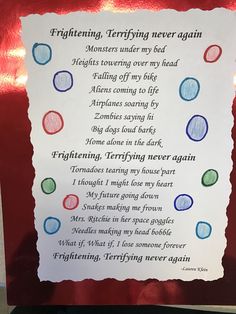 Frightening, Terrifying never again
Monsters under my bed
Heights towering over my head
Falling off my bike
Aliens coming to life
Airplanes soaring by
Zombies saying hi
Big dogs loud barks
Home alone in the dark
Frightening, Terrifying never again
Tornadoes tearing my house part
I thought I might lose my heart
My future going down
Snakes making me frown
Mrs. Ritchie in her space goggles
Needles making my head bobble
What if, What if, I lose someone forever
Frightening, Terrifying never again
-Lauren Klein